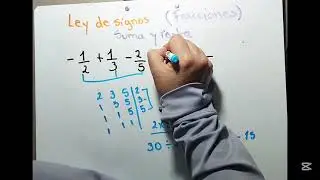 Ley de signos (Fracciones)
Suma y resta
- 1/2 + 1/3 - 2/5
2 3 5 | 2
1 3 5 | 3
1 1 5 | 5
1 1 1
30 ÷
- 15